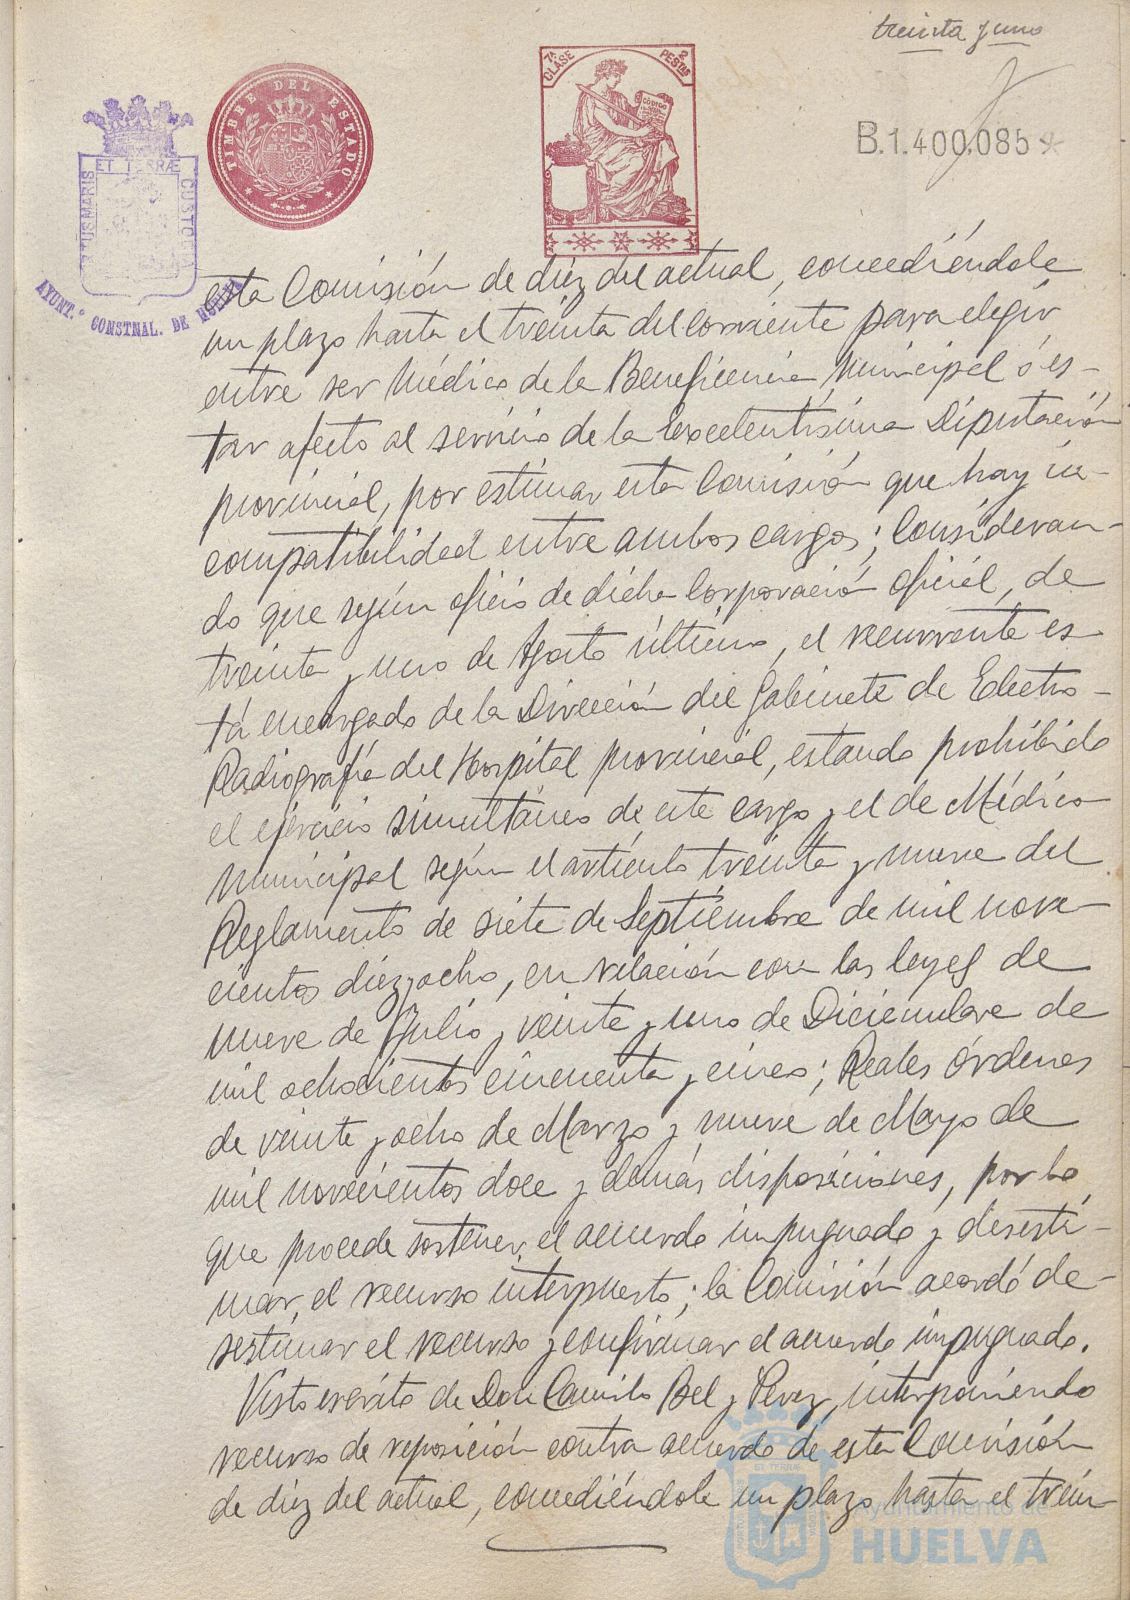 treinta y uno
B.1.400.085*
TIMBRE DEL ESTADO
7ª CLASE
2 PESTAS
CODIGO
ET TERRÆ
MARIS
CUSTO
AYUNT.º CONSTNAL. DE HUELVA
esta Comisión de diez del actual, concediéndole
un plazo hasta el treinta del corriente para elegir
entre ser Médico de la Beneficencia Municipal ó es-
tar afecto al servicio de la Excelentísima Diputación
provincial, por estimar esta Comisión que hay in-
compatibilidad entre ambos cargos; Consideran-
do que según oficio de dicha Corporación oficial, de
treinta y uno de Agosto último, el recurrente es-
tá encargado de la Dirección del Gabinete de Electro-
Radiografía del Hospital provincial, estando prohibido
el ejercicio simultáneo de este cargo y el de Médico
Municipal según el artículo treinta y nueve del
Reglamento de siete de Septiembre de mil nove-
cientos diez y ocho, en relación con las leyes de
nueve de Julio y veinte y uno de Diciembre de
mil ochocientos cincuenta y cinco; Reales órdenes
de veinte y ocho de Marzo y nueve de Mayo de
mil novecientos doce y demás disposiciones, por lo
que procede sostener el acuerdo impugnado y desesti-
mar el recurso interpuesto; la Comisión acordó de-
sestimar el recurso y confirmar el acuerdo impugnado.
Visto escrito de Don Camilo Bel y Perez, interponiendo
recurso de reposición contra acuerdo de esta Comisión
de diez del actual, concediéndole un plazo hasta el trein-
Ayuntamiento de
HUELVA